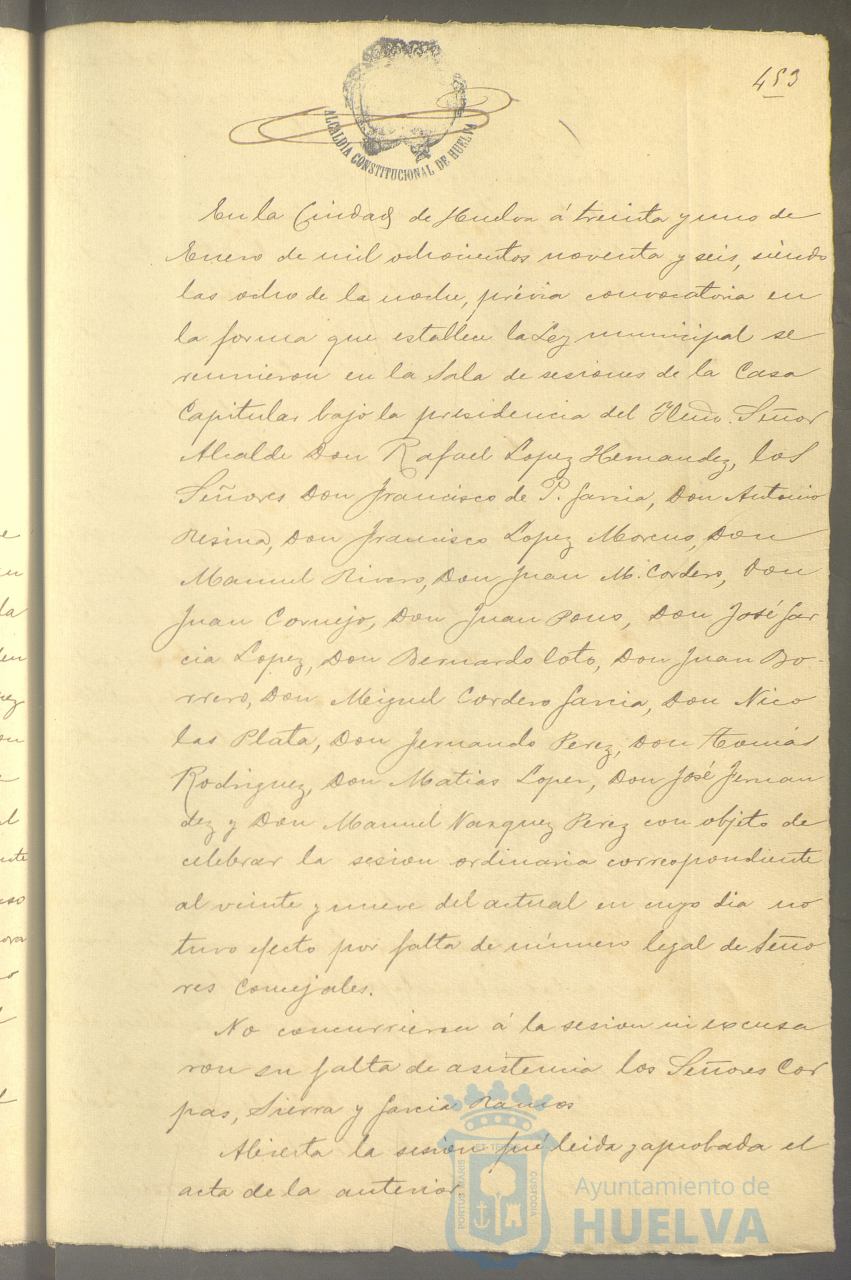 453
ALCALDIA CONSTITUCIONAL DE HUELVA
En la Ciudad de Huelva á treinta y uno de
Enero de mil ochocientos noventa y seis, siendo
las ocho de la noche, prévia convocatoria en
la forma que establece la Ley municipal se
reunieron en la Sala de sesiones de la Casa
Capitular bajo la presidencia del Iltmo. Señor
Alcalde Don Rafael Lopez Hernandez, los
Señores Don Francisco de P. Garcia, Don Antonio
Resina, Don Francisco Lopez Moreno, Don
Manuel Rivero, Don Juan M. Cordero, Don
Juan Cornejo, Don Juan Pons, Don José Gar
cia Lopez, Don Bernardo Coto, Don Juan Bo-
rrero, Don Miguel Cordero Garcia, Don Nico
las Plata, Don Fernando Perez, Don Tomás
Rodriguez, Don Matias Lopez, Don José Fernan
dez y Don Manuel Vazquez Perez con objeto de
celebrar la sesion ordinaria correspondiente
al veinte y nueve del actual en cuyo dia no
tuvo efecto por falta de número legal de Seño
res Concejales.
No concurrieron á la sesion ni excusa
ron su falta de asistencia los Señores Cor
pas, Sierra y Garcia Ramos
Abierta la sesion fué leida y aprobada el
acta de la anterior
PORTUS MARIS ET TERRAE CUSTODIA
Ayuntamiento de
HUELVA